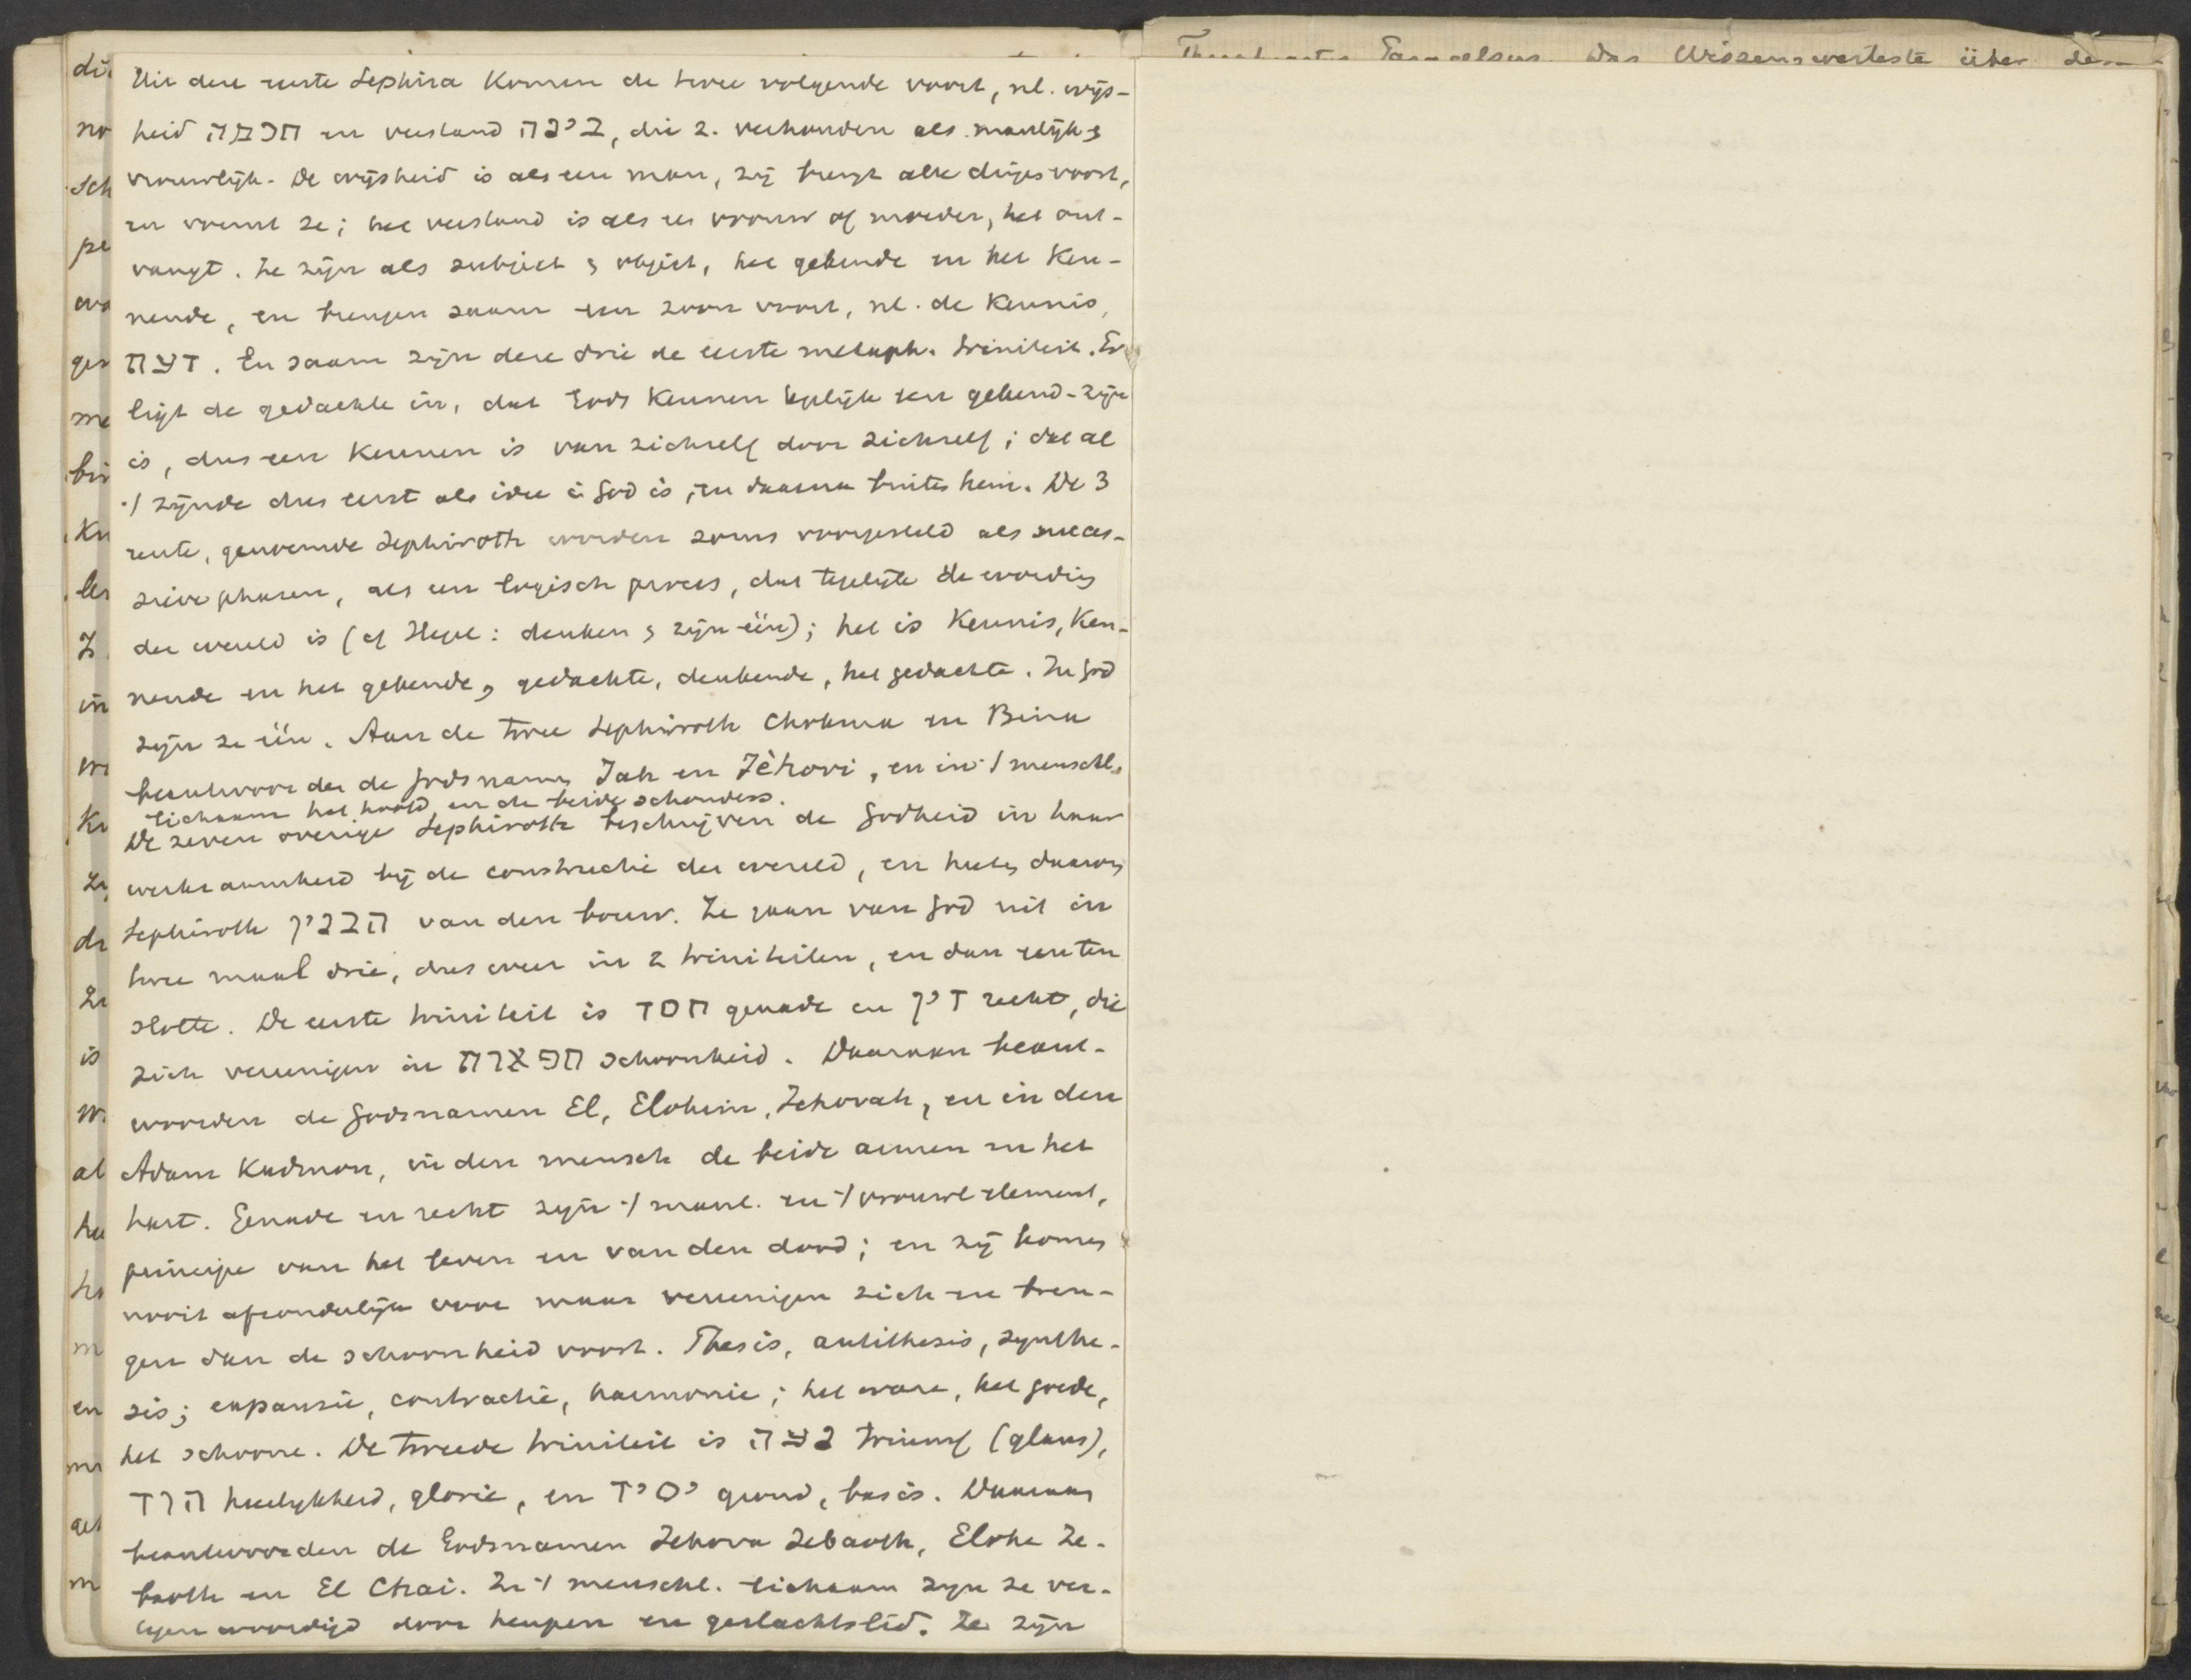 Uit deze eerste Sephira komen de twee volgende voort, nl. wijs-
heid חכמה en verstand בינה, die z. verhouden als manlijk &
vrouwlijk. De wijsheid is als een man, zij brengt alle dinges voort,
en vormt ze; het verstand is als een vrouw of moeder, het ont-
vangt. Ze zijn als subject & object, het gekende en het ken-
nende, en brengen saam een zoon voort, nl. de kennis,
דעת. En saam zijn deze drie de eerste metaph. triniteit. Er
ligt de gedachte in, dat Gods kennen tegelijk een gekend-zijn
is, dus een kennen is van zichzelf door zichzelf; dat al
·/ zijnde dus eerst als idee in God is, en daarna buiten hem. De 3
eerste, genoemde Sephiroth worden soms voorgesteld als succes-
sieve phasen, als een logisch proces, dat tegelijk de wording
der wereld is (cf Hegel: denken & zijn één); het is kennis, ken-
nende en het gekende, gedachte, denkende, het gedachte. In God
zijn ze één. Aan de twee Sephiroth Chokma en Bina
beantwoorden de Godsnamen Jah en Jèhovi, en in ·/ menschl.
lichaam het hoofd en de beide schouders.
De zeven overige Sephiroth beschrijven de Godheid in haar
werkzaamheid bij de constructie der wereld, en heeten daarom
Sephiroth הבנין van den bouw. Ze gaan van God uit in
twee maal drie, dus weer in 2 triniteiten, en dan een ten
slotte. De eerste triniteit is חסד genade en דין recht, die
zich vereenigen in תפארת schoonheid. Daaraan beant-
woorden de Godsnamen El, Elohim, Jehovah, en in den
Adam Kadmon, in den mensch de beide armen en het
hart. Genade en recht zijn ·/ manl. en ·/ vrouwl element,
principe van het leven en van den dood; en zij komen
nooit afzonderlijk voor maar vereenigen zich en bren-
gen dan de schoonheid voort. Thesis, antithesis, synthe-
sis; expansie, contractie, harmonie; het ware, het goede,
het schoone. De tweede triniteit is נצח triumf (glans),
הוד heerlijkheid, glorie, en יסיד grond, basis. Daaraan
beantwoorden de Godsnamen Jehova Zebaoth, Elohe Ze-
baoth en El Chai. In ·/ menschl. lichaam zijn ze ver-
tegenwoordigd door heupen en geslachtslid. Ze zijn
Paracelsus. Das Wissenswerteste über den